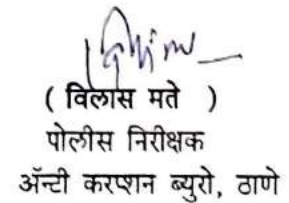 ( विलास मते )
पोलीस निरीक्षक
ॲन्टी करप्शन ब्युरो, ठाणे